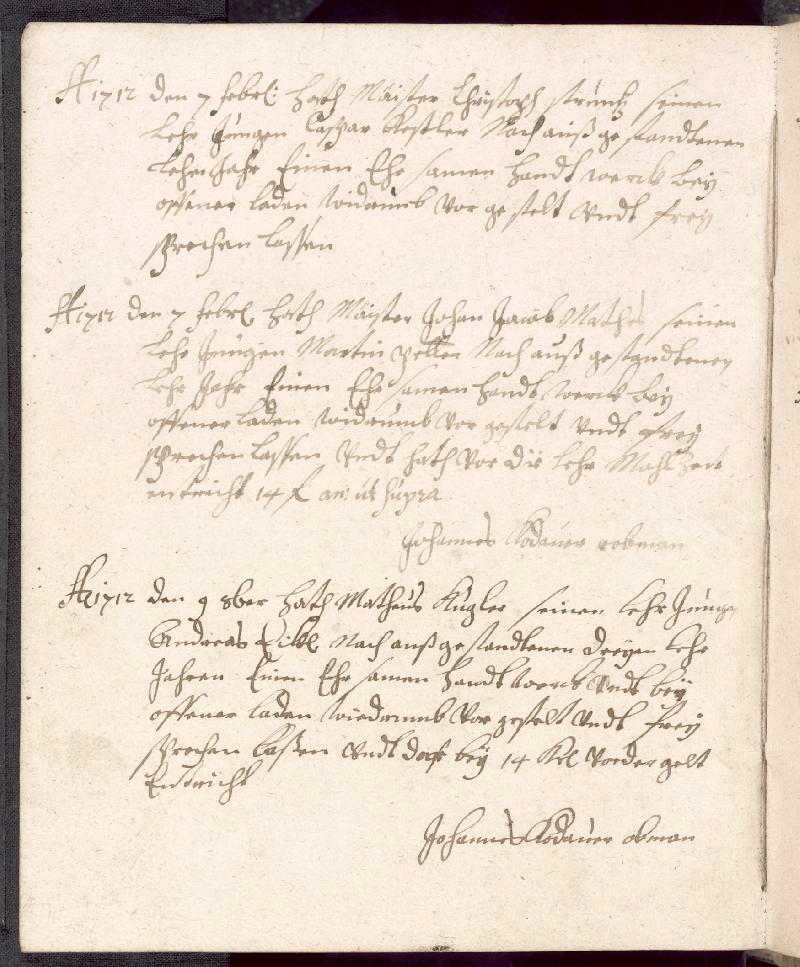 A 1712 den 7 febrl: hath Maister Christoph strunz seinen
lehr Jungen Caspar Kestler Nach auß gestandtenen
lehr Jahr Einen Ehr samen handt werck bey
offener laden widrumb vor gestelt undt frey
sprechen lassen
A 1712 den 7 febrl hath Maister Johan Jacob Mathes seinen
lehr Jungen Martin Zeller Nach auß gestandtenen
lehr Jahr Einen Ehr samen handt werck bey
offener laden widrumb vor gestelt undt frey
sprechen lassen undt hath vor die lehr Mahlzeit
entricht 14 f an: ut supra
Johannes Kodauer obman
A 1712 den 9 8ber hath Matheus Kugler seinen lehr Junge
Andreas Nach auß gestandtenen dreyen lehr
Jahren Einen Ehr samen handt werck undt bey
offener laden wiedrumb vor gestelt undt frey
sprechen laßen undt bey 14 vorder gelt
Entricht
Johannes Kodauer obman